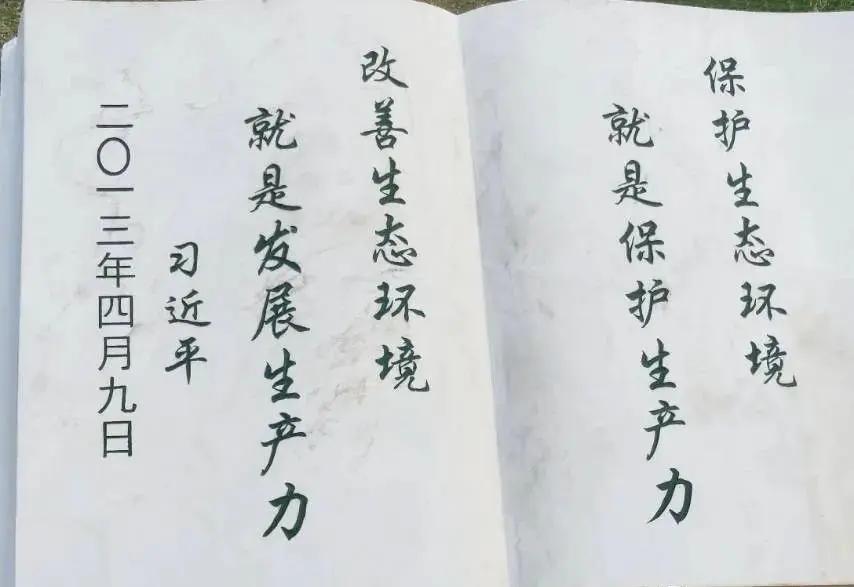 保护生态环境
就是保护生产力
改善生态环境
就是发展生产力
习近平
二〇一三年四月九日